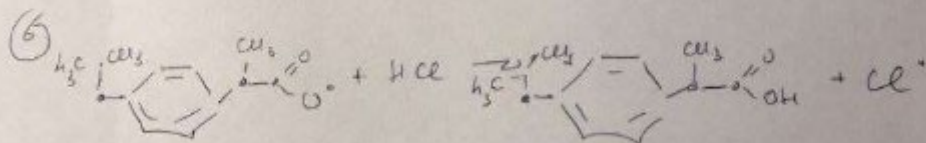 6
H₃C CH₃ CH₃ O O⁻ + HCl ⇌ H₃C CH₃ CH₃ O OH + Cl⁻